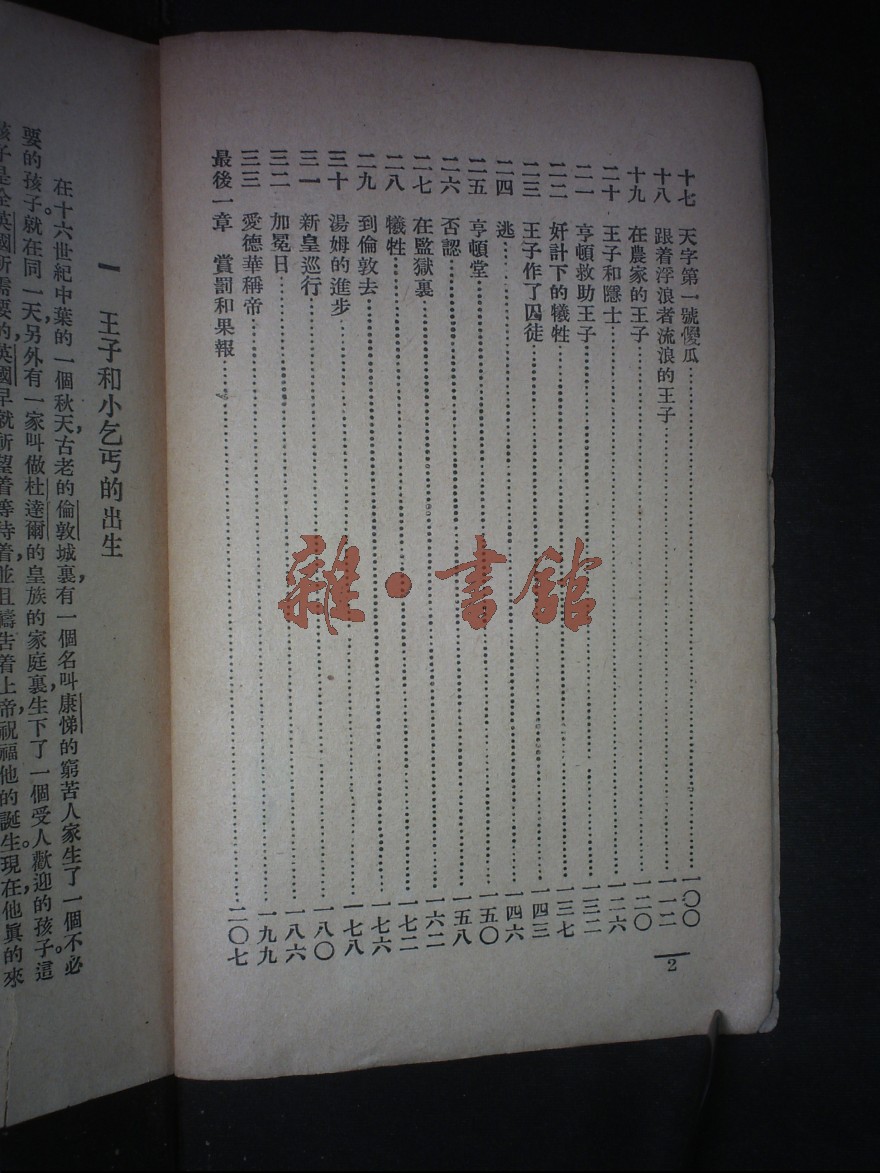 十七　天字第一號儍瓜……一〇〇
十八　跟着浮浪者流浪的王子……一一二
十九　在農家的王子……一二〇
二十　王子和隱士……一二六
二一　亨頓救助王子……一三二
二二　奸計下的犧牲……一三七
二三　王子作了囚徒……一四三
二四　逃……一四六
二五　亨頓堂……一五〇
二六　否認……一五八
二七　在監獄裏……一六二
二八　犧牲……一七二
二九　到倫敦去……一七六
三十　湯姆的進步……一七八
三一　新皇巡行……一八〇
三二　加冕日……一八六
三三　愛德華稱帝……一九九
最後一章　賞罰和果報……二〇七
2
雜·書館
一　王子和小乞丐的出生
在十六世紀中葉的一個秋天,古老的倫敦城裏,有一個名叫康悌的窮苦人家,生了一個不必
要的孩子。就在同一天,另外有一家叫做杜達爾的皇族的家庭裏,生下了一個受人歡迎的孩子。這
孩子是全英國所需要的,英國早就祈望着,等待着,並且禱告着上帝,祝福他的誕生。現在他眞的來